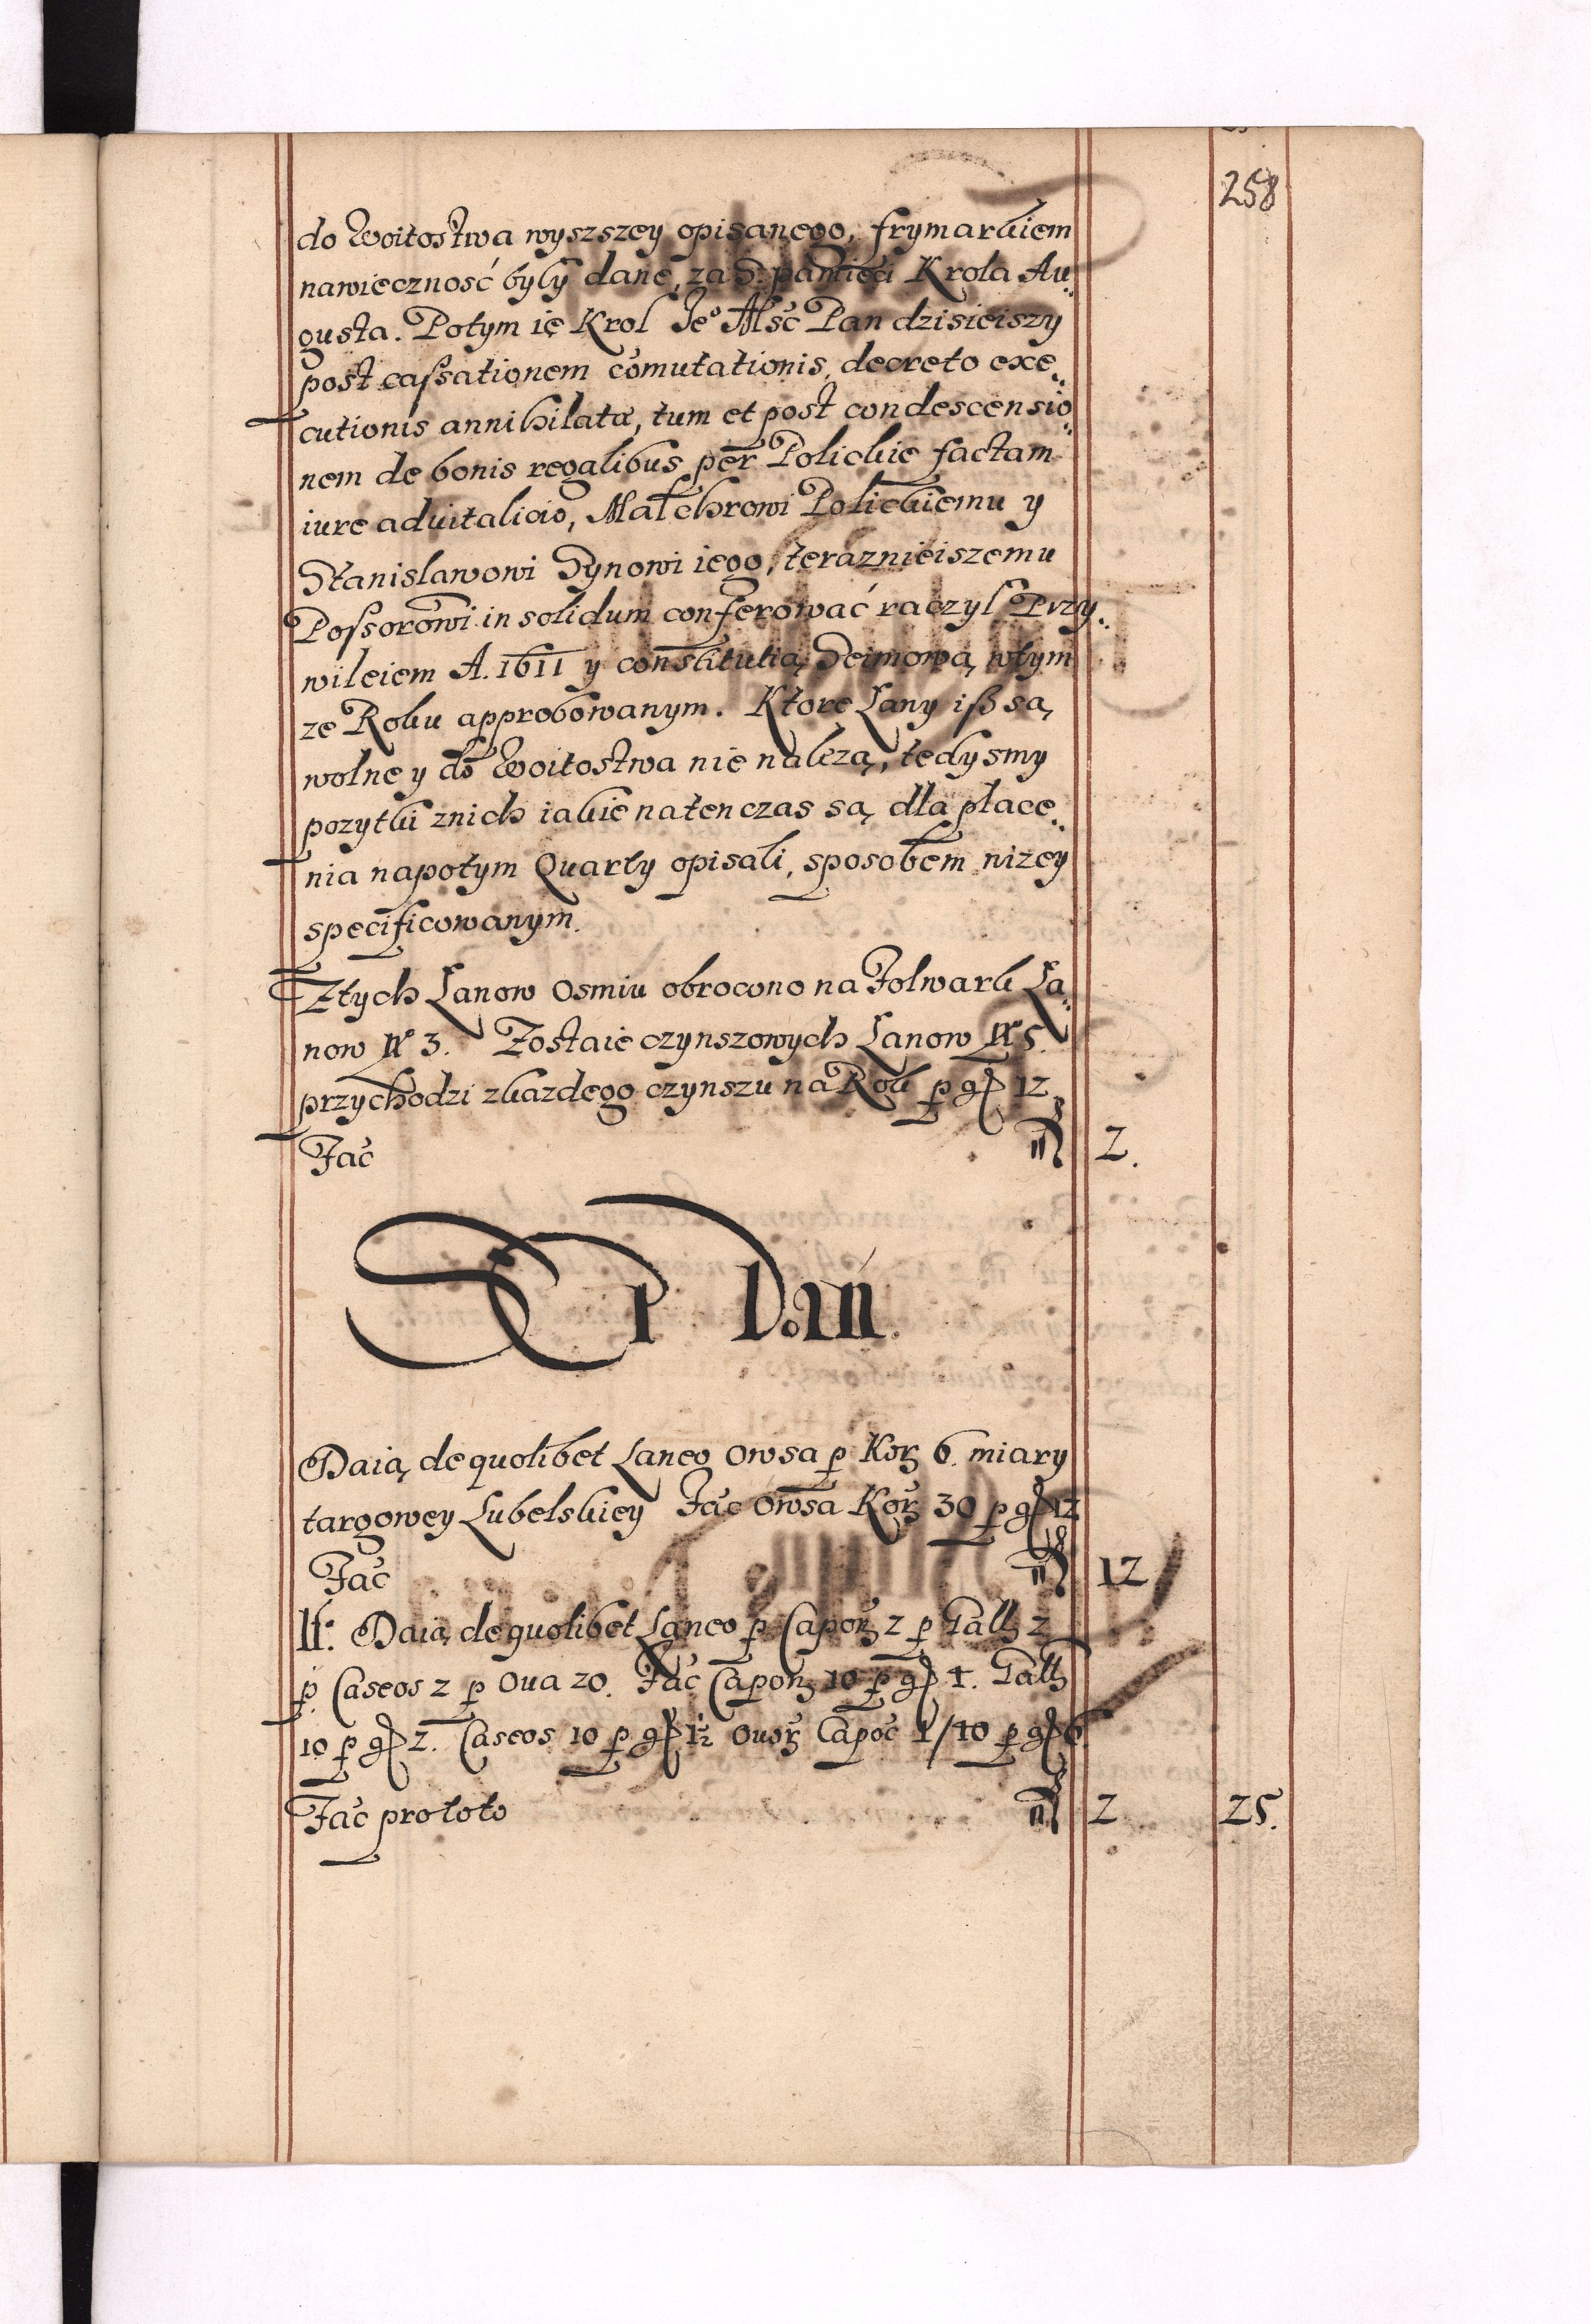 258
do Woitostwa wyszszey opisanego, frymarkiem
nawieczność były dane, za S. pamięci Krola Au„
gusta. Potym ie Krol Je° Mść Pan dzisieiszy
post cassationem comutationis, decreto exe„
cutionis annihilatæ, tum et post condescensio„
nem de bonis regalibus per Polickie factam
iure aduitalicio, Malchrowi Polickiemu y
Stanislawowi Synowi iego, teraznieiszemu
Possorowi in solidum conferować raczył Przy„
wileiem A. 1611 y constitutią Seimową wtym
ze Roku approbowanym. Ktore Łany iß są
wolne y do Woitostwa nie nalezą, tedysmy
pozytki znich iakie natenczas są dla płace„
nia napotym Quarty opisali, sposobem nizey
specificowanym.
Ztych Łanow Osmiu obrocono na Folwark Ła„
now N° 3. Zostaie czynszowych Łanow N° 5.
przychodzi zkazdego czynszu na Rok p gr 12
Fac fl 2.
Dań.
Daią de quolibet Laneo Owsa p Korz 6. miary
targowey Lubelskiey Fac Owsa Korz 30 p gr 12
Fac fl 12
It. Daią de quolibet Laneo p Capon 2 p Gall 2
p Caseos 2 p Oua 20. Fac Capon 10 p gr 4. Gall
10 p gr 2. Caseos 10 p gr 1½ Ouor Capoc 1/40 p gr 6
Fac prototo fl 2 25.